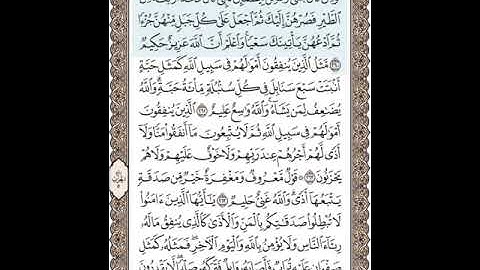 ٱلطَّيْرِ فَصُرْهُنَّ إِلَيْكَ ثُمَّ ٱجْعَلْ عَلَىٰ كُلِّ جَبَلٍ مِّنْهُنَّ جُزْءًا
ثُمَّ ٱدْعُهُنَّ يَأْتِينَكَ سَعْيًا وَٱعْلَمْ أَنَّ ٱللَّهَ عَزِيزٌ حَكِيمٌ
٢٦٠ مَّثَلُ ٱلَّذِينَ يُنفِقُونَ أَمْوَٰلَهُمْ فِى سَبِيلِ ٱللَّهِ كَمَثَلِ حَبَّةٍ
أَنۢبَتَتْ سَبْعَ سَنَابِلَ فِى كُلِّ سُنۢبُلَةٍ مِّا۟ئَةُ حَبَّةٍ وَٱللَّهُ
يُضَٰعِفُ لِمَن يَشَآءُ وَٱللَّهُ وَٰسِعٌ عَلِيمٌ ٢٦١ ٱلَّذِينَ يُنفِقُونَ
أَمْوَٰلَهُمْ فِى سَبِيلِ ٱللَّهِ ثُمَّ لَا يُتْبِعُونَ مَآ أَنفَقُوا۟ مَنًّا وَلَآ
أَذًى لَّهُمْ أَجْرُهُمْ عِندَ رَبِّهِمْ وَلَا خَوْفٌ عَلَيْهِمْ وَلَا هُمْ
يَحْزَنُونَ ٢٦٢ قَوْلٌ مَّعْرُوفٌ وَمَغْفِرَةٌ خَيْرٌ مِّن صَدَقَةٍ
يَتْبَعُهَآ أَذًى وَٱللَّهُ غَنِىٌّ حَلِيمٌ ٢٦٣ يَٰٓأَيُّهَا ٱلَّذِينَ ءَامَنُوا۟
لَا تُبْطِلُوا۟ صَدَقَٰتِكُم بِٱلْمَنِّ وَٱلْأَذَىٰ كَٱلَّذِى يُنفِقُ مَالَهُۥ
رِئَآءَ ٱلنَّاسِ وَلَا يُؤْمِنُ بِٱللَّهِ وَٱلْيَوْمِ ٱلْءَاخِرِ فَمَثَلُهُۥ كَمَثَلِ
صَفْوَانٍ عَلَيْهِ تُرَابٌ فَأَصَابَهُۥ وَابِلٌ فَتَرَكَهُۥ صَلْدًا لَّا يَقْدِرُونَ